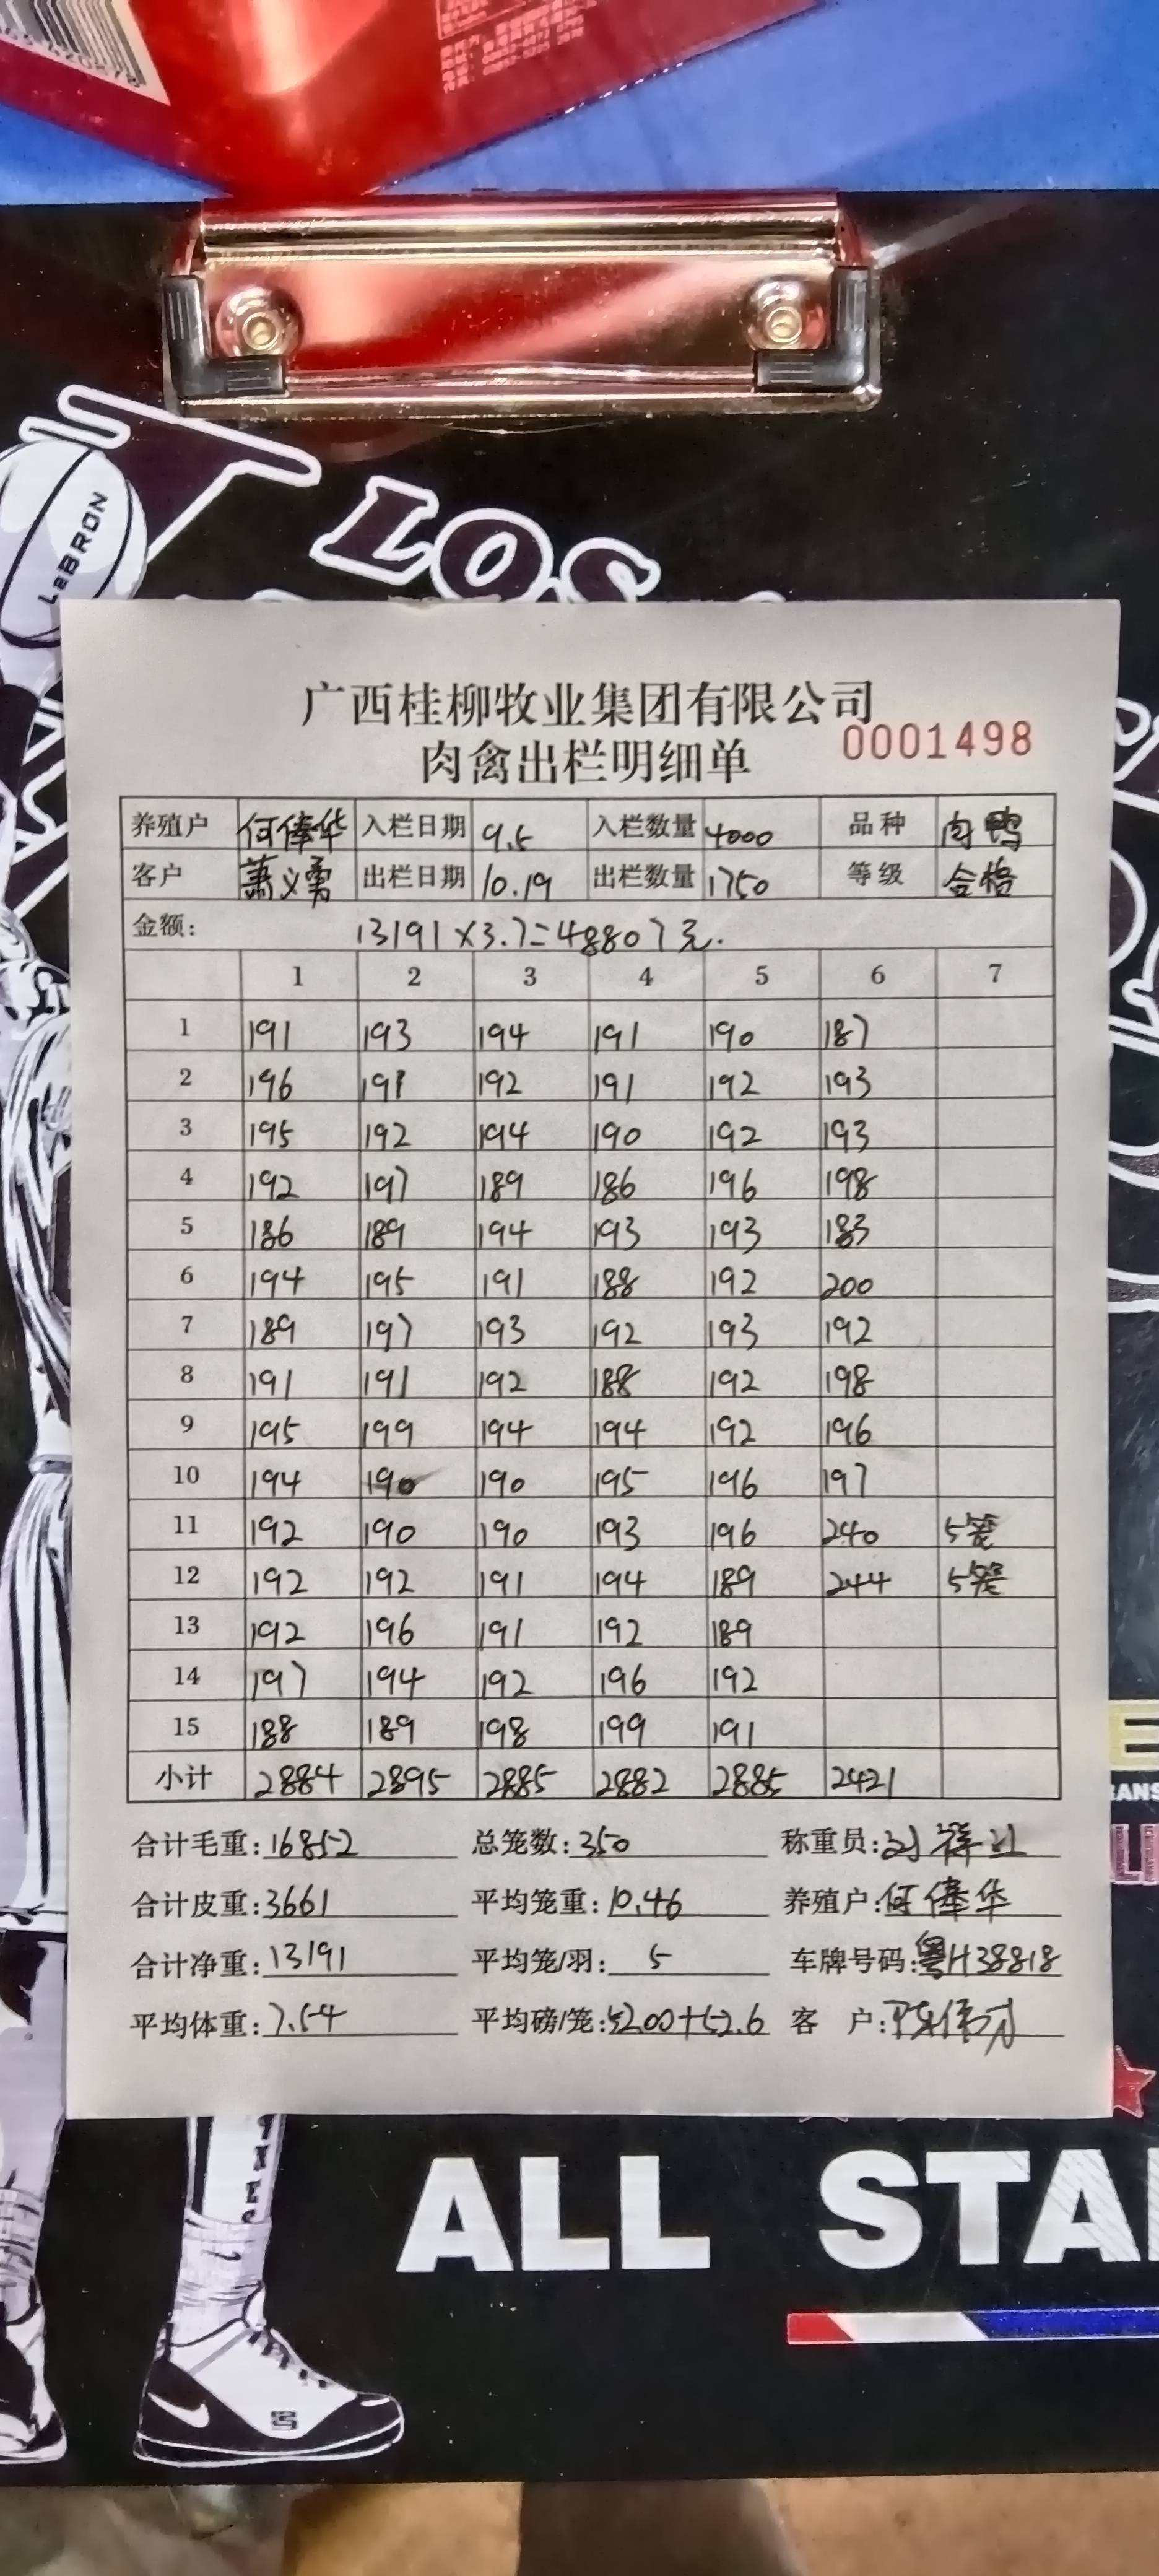 LeBRON
LOS
广西桂柳牧业集团有限公司
肉禽出栏明细单 0001498
养殖户 何倖华 入栏日期 9.5 入栏数量 4000 品种 肉鸭
客户 萧义勇 出栏日期 10.19 出栏数量 1750 等级 合格
金额: 13191×3.7=48807元.
1 2 3 4 5 6 7
1 191 193 194 191 190 187
2 196 191 192 191 192 193
3 195 192 194 190 192 193
4 192 197 189 186 196 198
5 186 189 194 193 193 183
6 194 195 191 188 192 200
7 189 197 193 192 193 192
8 191 191 192 188 192 198
9 195 199 194 194 192 196
10 194 190 190 195 196 197
11 192 190 190 193 196 240 5笼
12 192 192 191 194 189 244 5笼
13 192 196 191 192 189
14 197 194 192 196 192
15 188 189 198 199 191
小计 2884 2895 2885 2882 2885 2421
合计毛重:16852 总笼数:350 称重员:
合计皮重:3661 平均笼重:10.46 养殖户:何倖华
合计净重:13191 平均笼/羽: 5 车牌号码:粤H38818
平均体重:7.54 平均磅/笼:52.00+52.6 客 户:
ALL STA